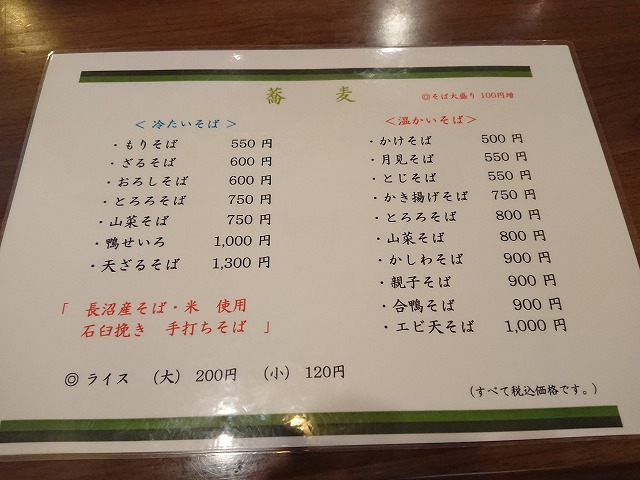 蕎　麦
◎そば大盛り 100円増
＜ 冷たいそば ＞
・もりそば 550 円
・ざるそば 600 円
・おろしそば 600 円
・とろろそば 750 円
・山菜そば 750 円
・鴨せいろ 1,000 円
・天ざるそば 1,300 円
「　長沼産そば・米　使用
石臼挽き　手打ちそば　」
＜温かいそば＞
・かけそば 500 円
・月見そば 550 円
・とじそば 550 円
・かき揚げそば 750 円
・とろろそば 800 円
・山菜そば 800 円
・かしわそば 900 円
・親子そば 900 円
・合鴨そば 900 円
・エビ天そば 1,000 円
◎ ライス　（大） 200円　（小） 120円
（すべて税込価格です。）